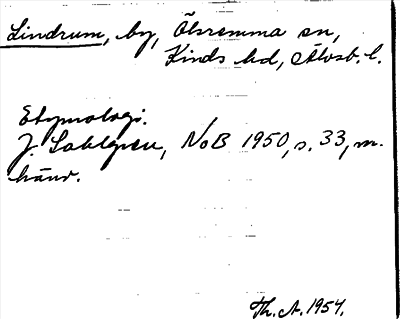 Lindrum, by, Ölsremma sn,
Kinds hd, Älvsb. l.
Etymologi.
J. Sahlgren, NoB 1950, s. 33, m.
hänv.
Th. A. 1954.